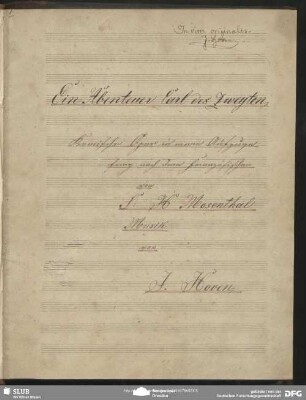 Ein Abenteuer Carl des Zweyten.
Komische Oper in einem Aufzuge
frey nach dem Französischen
von
S. H. Mosenthal
Musik
von
J. Hoven
SLUB
Wir führen Wissen.
gefördert von der
Deutschen Forschungsgemeinschaft
DFG